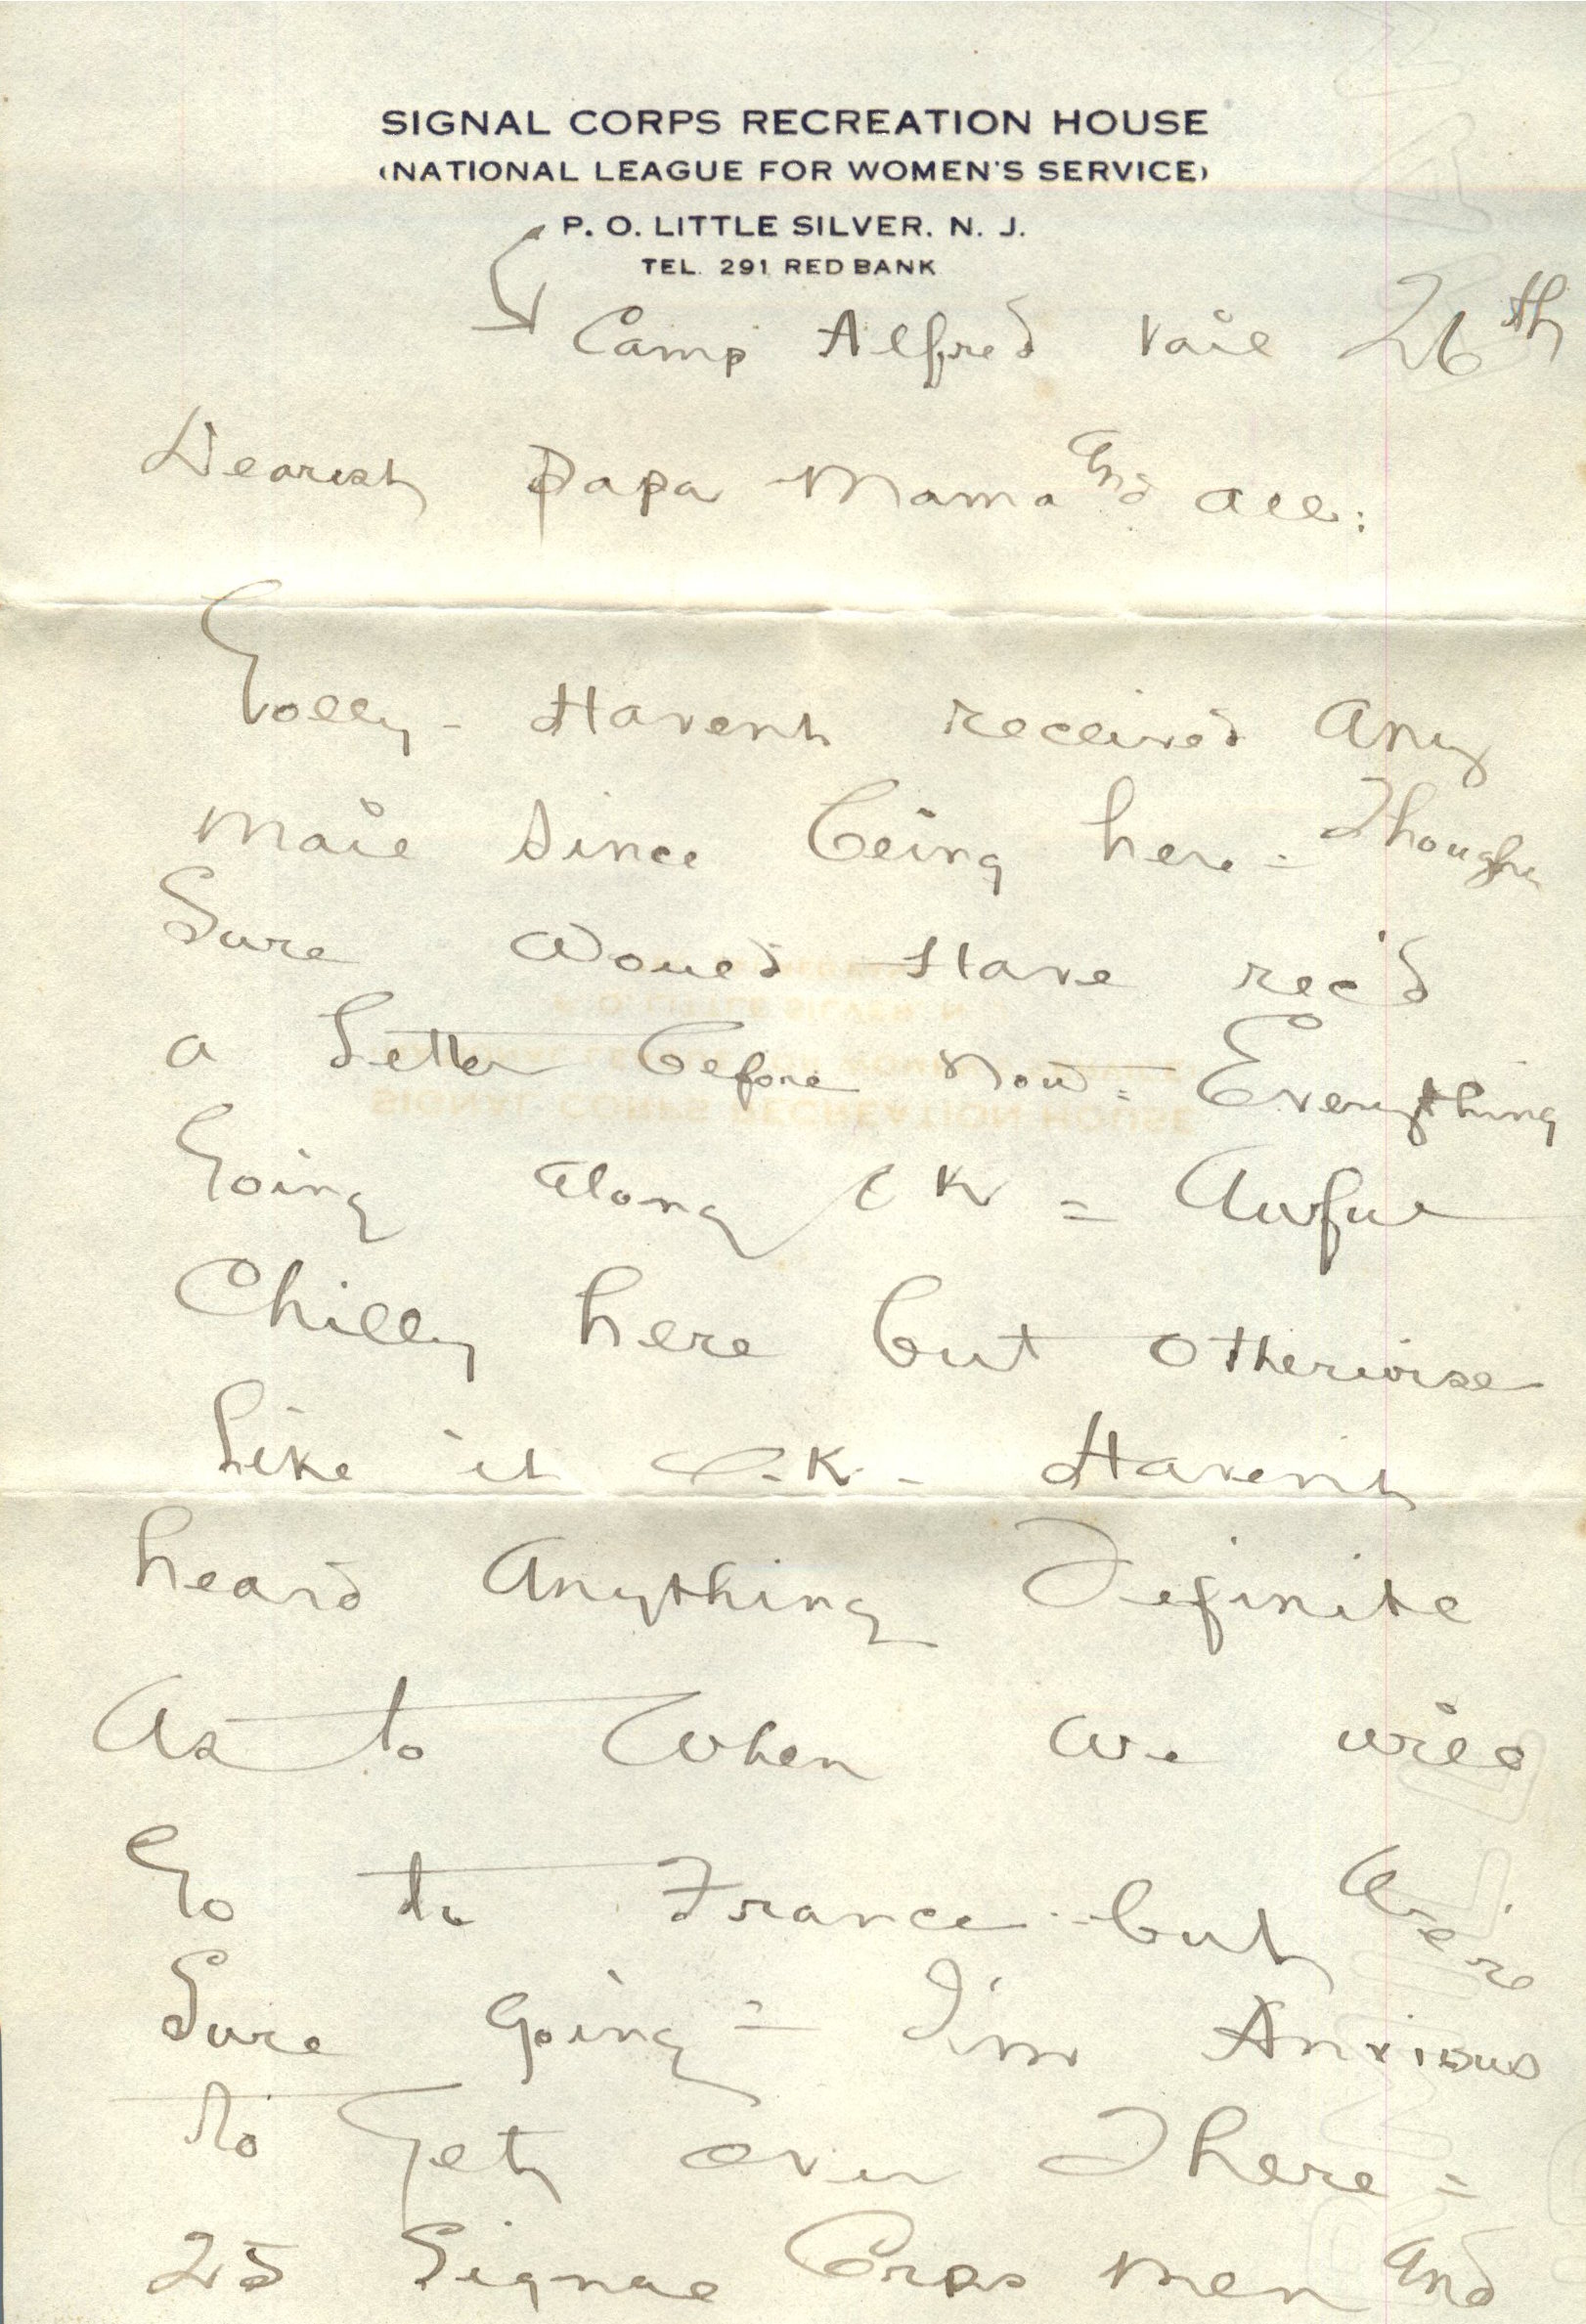 SIGNAL CORPS RECREATION HOUSE
(NATIONAL LEAGUE FOR WOMEN'S SERVICE)
P. O. LITTLE SILVER. N. J.
TEL. 291 RED BANK
Camp Alfred Vail 26th
Dearest Papa Mama and all:
Golly - Havent received any
mail since being here = Thought
Sure would Have rec'd
a Letter before now = Everything
Going along OK = Awful
Chilly here but otherwise
Like it O.K. - Havent
heard Anything Definite
As to When we will
Go to France - but we're
Sure going = I'm Anxious
to Get over There =
25 Signal Corps men and